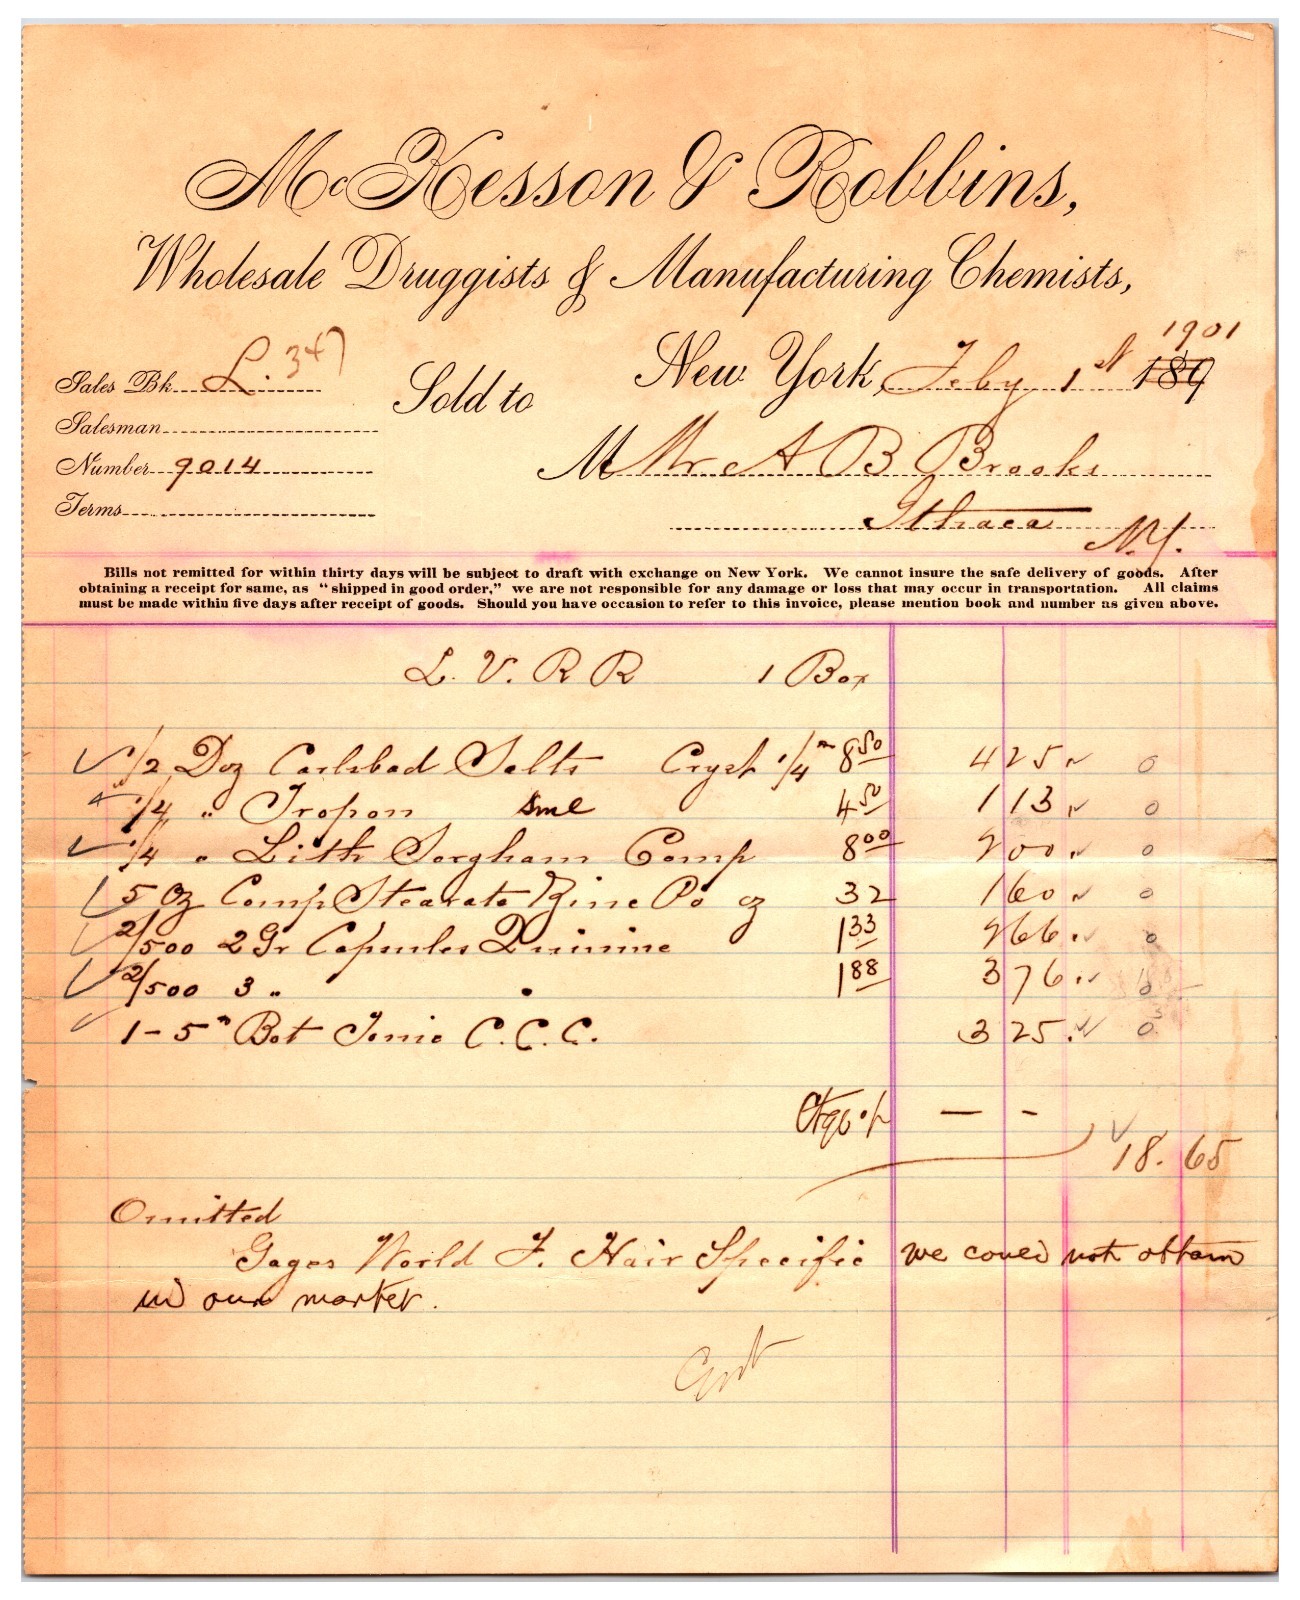 McKesson & Robbins,
Wholesale Druggists & Manufacturing Chemists,
Sales Bk L. 347
Salesman
Number 9014
Terms
Sold to
New York, Feby 1st 189 1901
M Mr A B Brooks
Ithaca N.Y.
Bills not remitted for within thirty days will be subject to draft with exchange on New York. We cannot insure the safe delivery of goods. After
obtaining a receipt for same, as "shipped in good order," we are not responsible for any damage or loss that may occur in transportation. All claims
must be made within five days after receipt of goods. Should you have occasion to refer to this invoice, please mention book and number as given above.
L. V. R R 1 Box
1/2 Doz Carlsbad Salts Cryst 1/4 8 50 4 25 0
1/4 " Tropon Sml 4 50 1 13 0
1/4 " Lith Sorgham Comp 8 00 2 00 0
5 Oz Comp Stearate Zinc Po oz 32 1 60 0
2/500 2 Gr Capsules Quinine 1 33 2 66 0
2/500 3 " " 1 88 3 76 0
1-5 " Bot Tonic C.C.C. 3 25 0
— -
18.65
Omitted
Gages World F. Hair Specific we could not obtain
in our market.